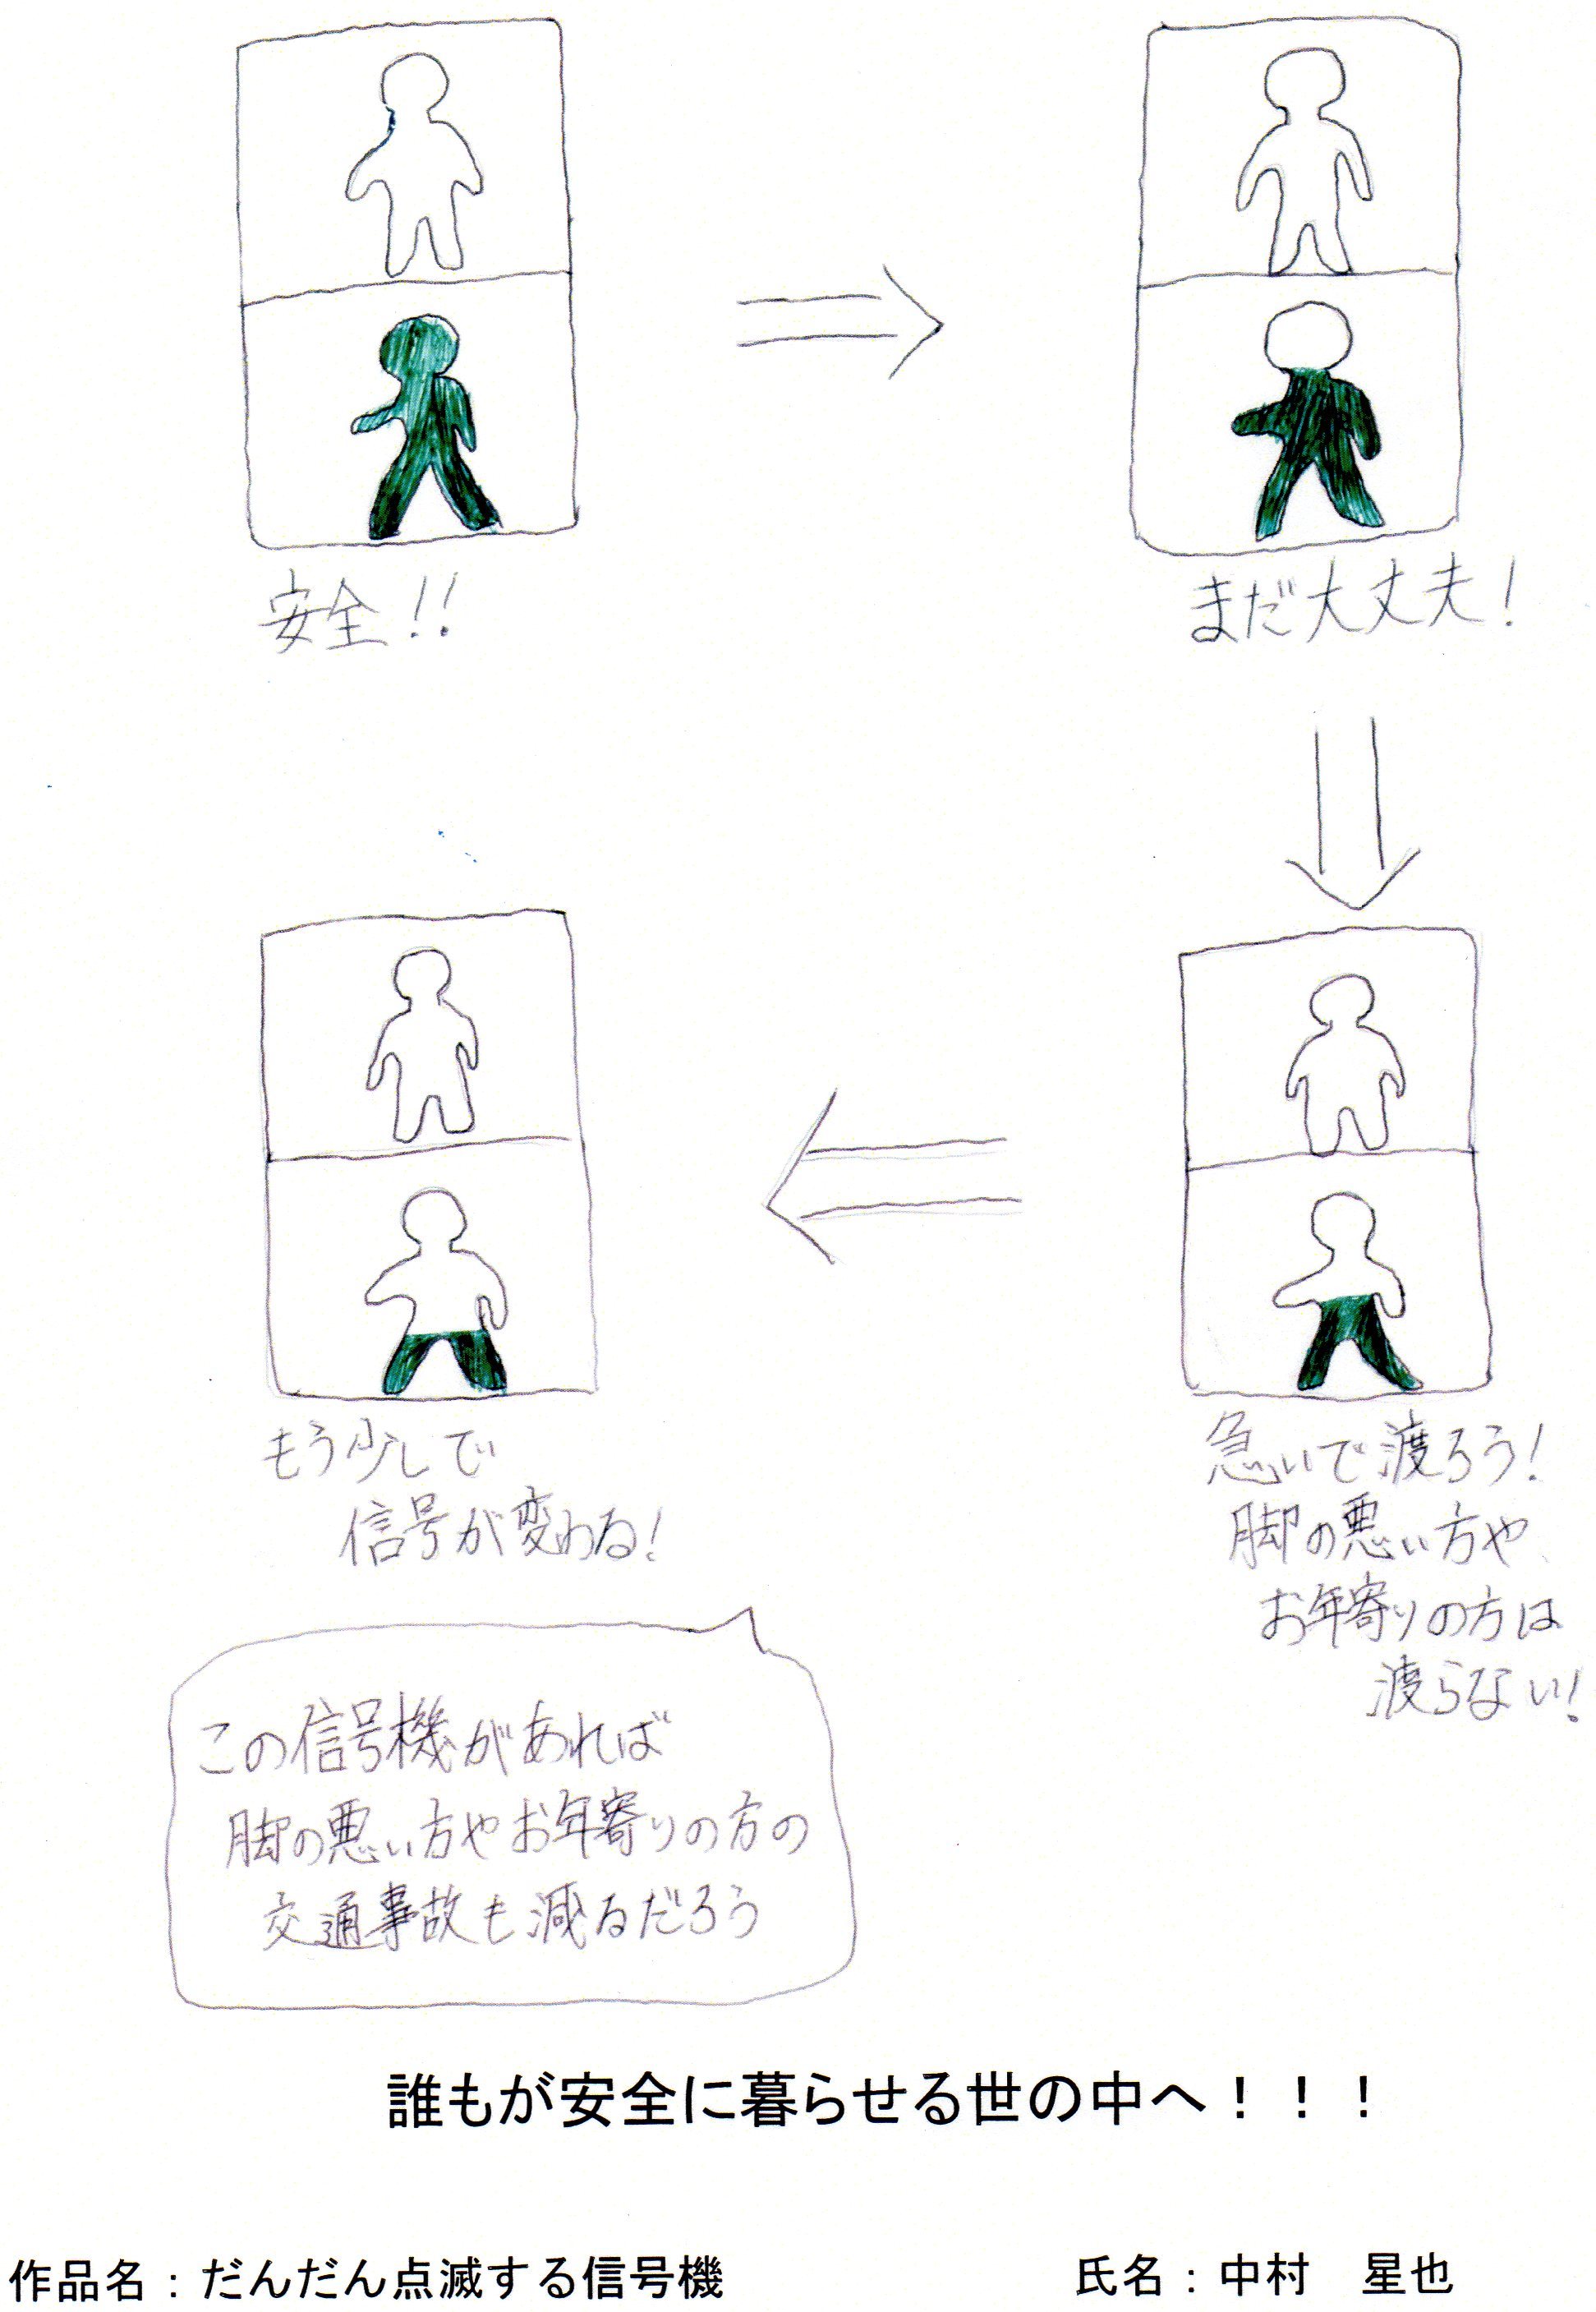 安全!!
まだ大丈夫!
急いで渡ろう!
脚の悪い方や
お年寄りの方は
渡らない!
もう少しで
信号が変わる!
この信号機があれば
脚の悪い方やお年寄りの方の
交通事故も減るだろう
誰もが安全に暮らせる世の中へ！！！
作品名：だんだん点滅する信号機
氏名：中村　星也